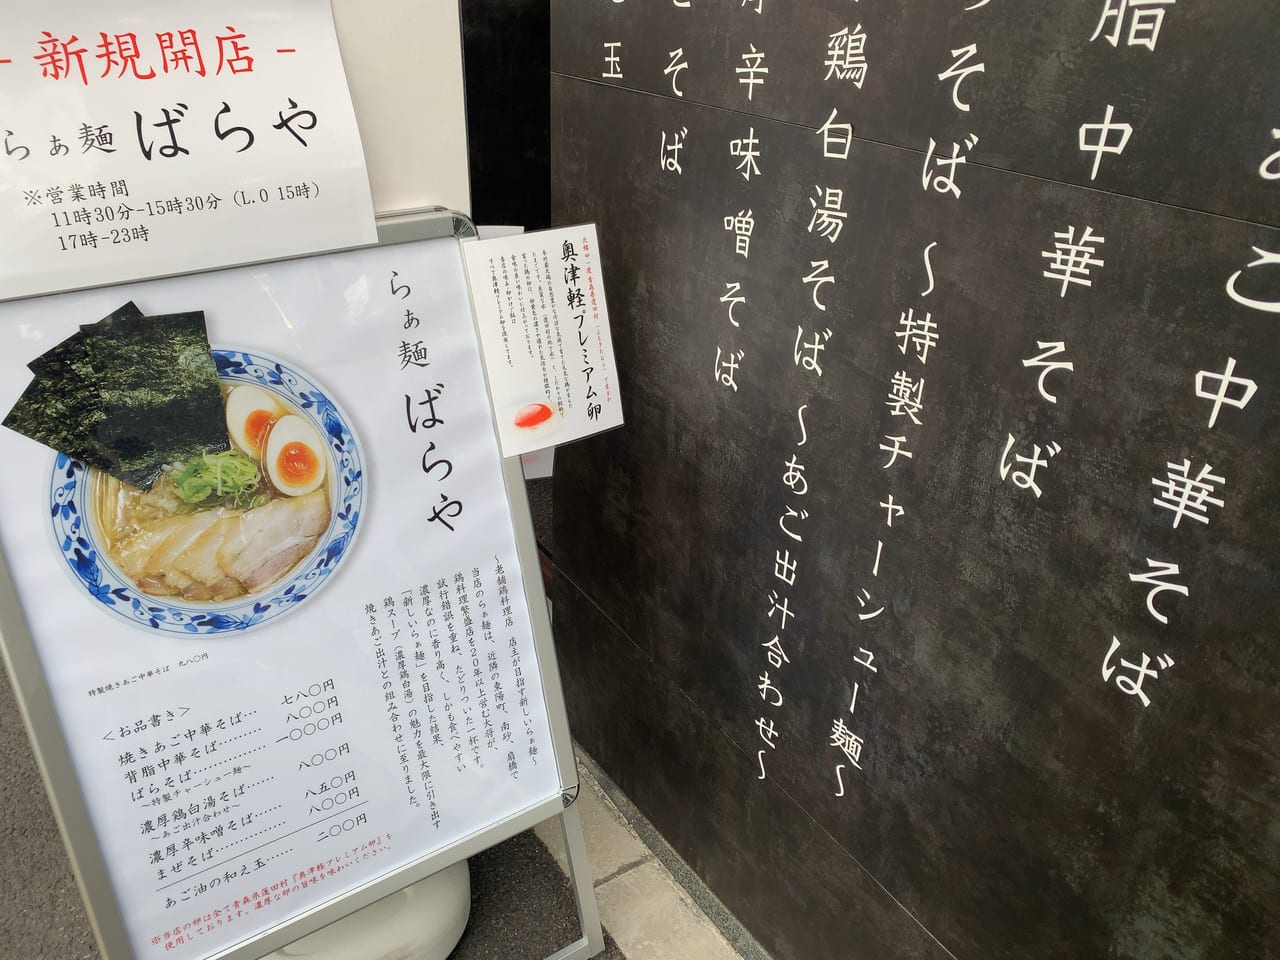 - 新規開店 -
らぁ麺 ばらや
※営業時間
11時30分-15時30分 (L.O 15時)
17時-23時
らぁ麺 ばらや
～老舗鶏料理店 店主が目指す新しいらぁ麺～
当店のらぁ麺は、近隣の東陽町、南砂、扇橋で
鶏料理繁盛店を20年以上営む大将が、
試行錯誤を重ね、たどりついた一杯です。
濃厚なのに香り高く、しかも食べやすい
「新しいらぁ麺」を目指した結果、
鶏スープ(濃厚鶏白湯)の魅力を最大限に引き出す
焼きあご出汁との組み合わせに至りました。
特製焼きあご中華そば 九八〇円
＜お品書き＞
焼きあご中華そば… 七八〇円
背脂中華そば……… 八〇〇円
ばらそば………… 一〇〇〇円
～特製チャーシュー麺～
濃厚鶏白湯そば…… 八〇〇円
～あご出汁合わせ～
濃厚辛味噌そば…… 八五〇円
まぜそば………… 八〇〇円
あご油の和え玉…… 二〇〇円
※当店の卵は全て青森県蓬田村『奥津軽プレミアム卵』を
使用しております。濃厚な卵の旨味を味わいください。
奥津軽プレミアム卵
すべて奥津軽プレミアム卵を使用してます。
あご中華そば
脂中華そば
そば ～特製チャーシュー麺～
鶏白湯そば ～あご出汁合わせ～
辛味噌そば
そば
玉